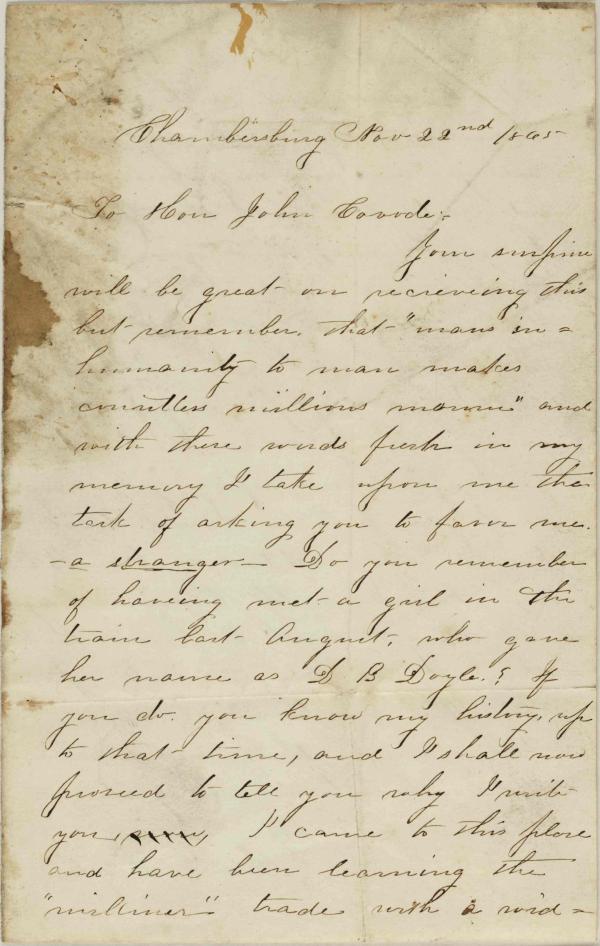 Chambersburg Nov 22nd 1865
To Hon John Covode:-
Your surprise
will be great on recieveing this
but remember, that "mans in=
humanity to man makes
countless millions mourn" and
with these words fresh in my
memory I take upon me the
task of asking you to favor me.
- a stranger - Do you remember
of haveing met a girl in the
train last August, who gave
her name as D B Doyle.? If
you do. you know my history, up
to that time, and I shall now
proceed to tell you why I write
you, I came to this place
and have been learning the
"milliner" trade with a wid=